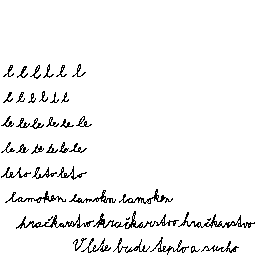 l l l l l l
l l l l l l
le le le le le le
le le te le le le
leto leto leto
lamoken lamokn lamoken
hračkarstvo kračkarstvo hračkarstvo
V lete bude teplo a sucho